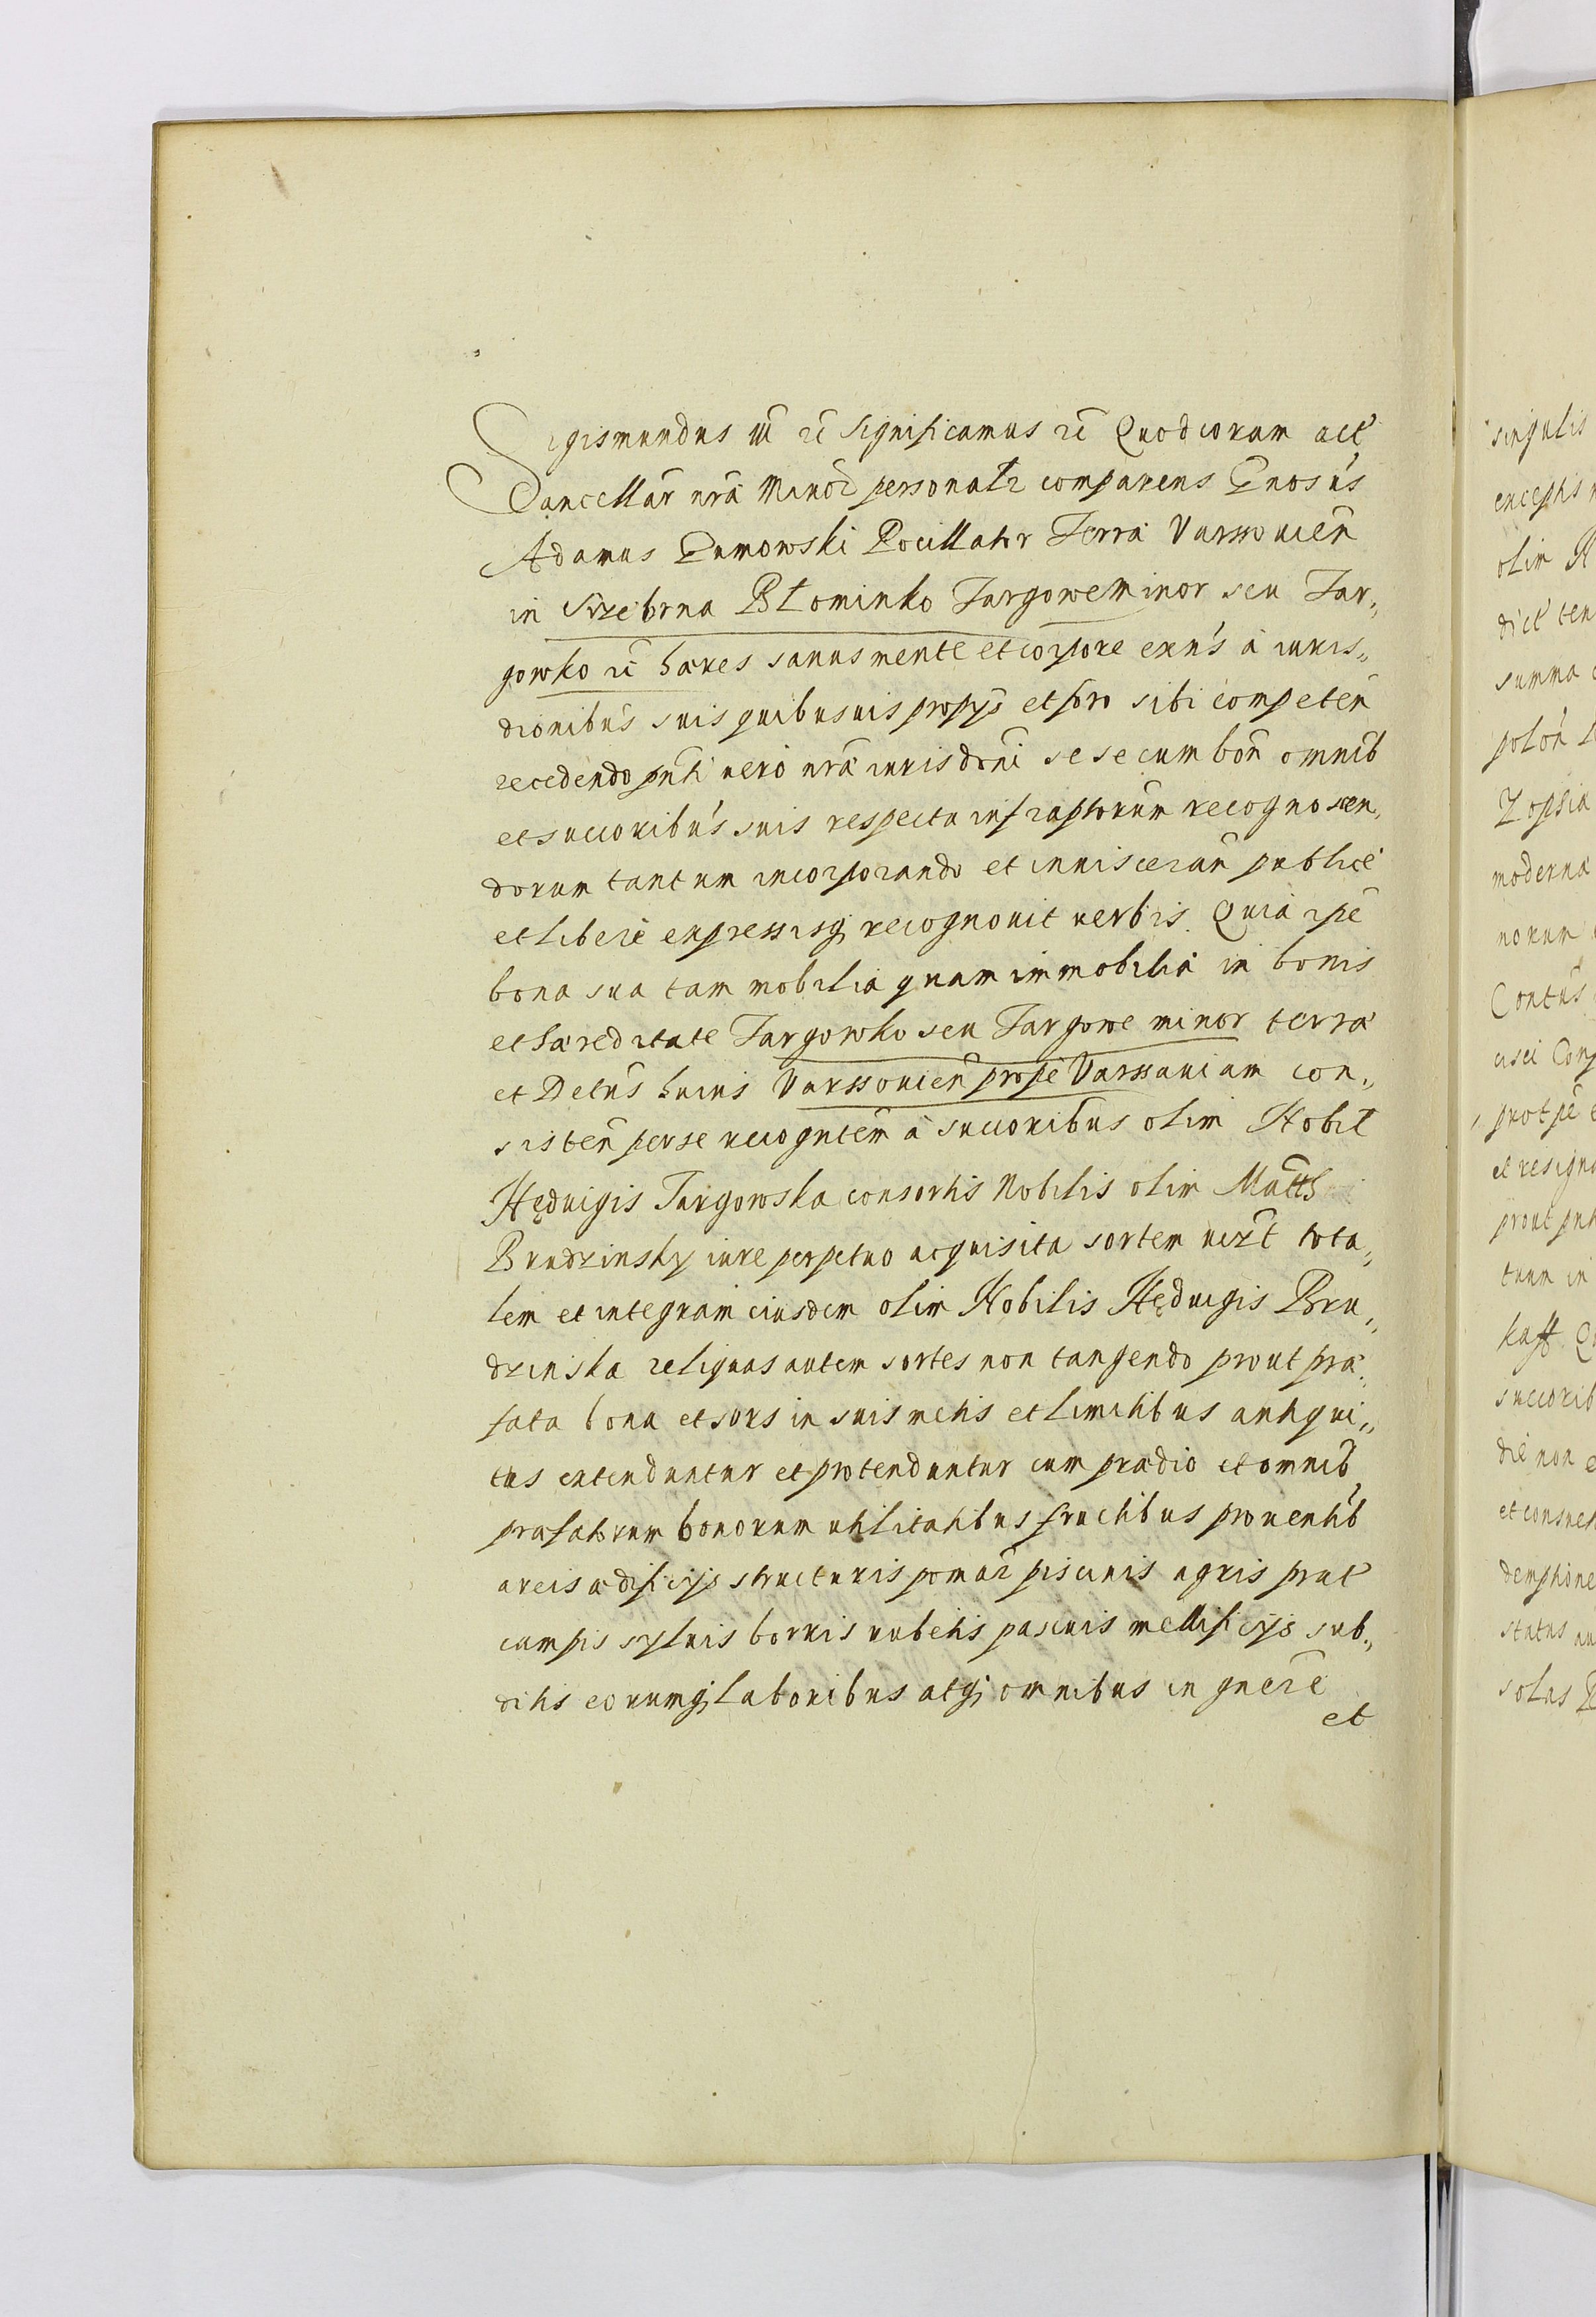 Sigismundus III &c̃ Significamus &c̃ Quod coram act
Cancellar̃ nr̃a Minor̃ personalr̃ comparens Gnosus
Adamus Gumowski Pocillator Terræ Varssouien̄
in Srzebrna Błominko Targowe Minor seu Tar„
gowko &c̃ hæres sanus mente et corpore exñs a iuris„
dionibus suis quibusuis proprijs et foro sibi competeñ
recedendo pnti uero nr̃a iurisdoni se se cum boñ omnib
et succoribus suis respectu infraptorum recognoscen„
dorum tantum incorporando et inuisceran publicè
et liberè expressisq; recognouit uerbis. Quia ipe
bona sua tam mobilia quam immobilia in bonis
et hæreditate Targowko seu Targowe minor terræ
et Dctus huius Varssouien̄ propè Varssauiam con„
sisteñ per se recogntem à succoribus olim Nobil
Hęduigis Targowska consortis Nobilis olim Matth
Brudzinsky iure perpetuo acquisita sortem uizt tota„
lem et integram eiusdem olim Nobilis Hęduigis Bru„
dzinska reliquas autem sortes non tangendo prout præ„
fata bona et sors in suis metis et limitibus antiqui„
tus extenduntur et protenduntur cum prædio et omnib
præfatorum bonorum utilitatibus fructibus prouentib
areis ædificijs structuris pomar̃ piscinis agris prat
campis syluis borris rubetis pascuis mellificijs sub„
ditis eorumq; laboribus atq; omnibus in gnere
et